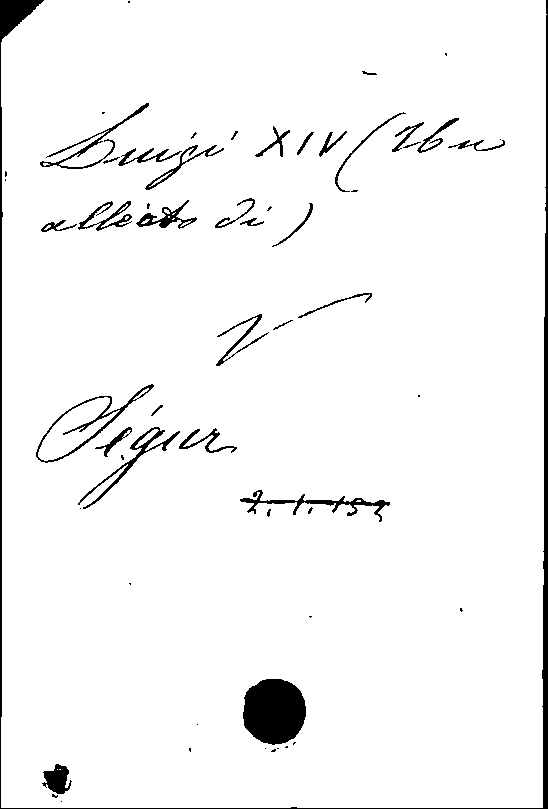 Luigi XIV (Un
alleato di)
V
Ségur
2.1.153